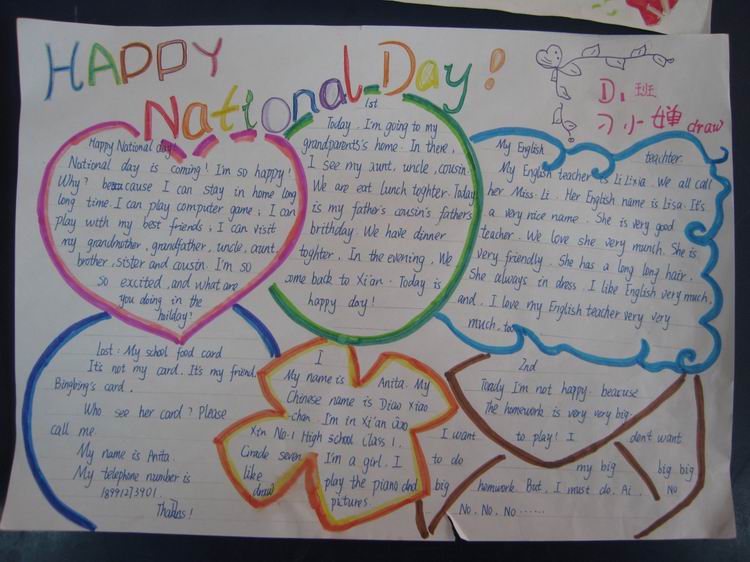 HAPPY
National Day!
D₁班
刁小婵 draw
Happy National day!
National day is coming! I'm so happy!
Why? beacause I can stay in home long
long time. I can play computer game, I can
play with my best friends, I can visit
my grandmother, grandfather, uncle, aunt,
brother, sister and cousin. I'm so
so excited, and what are
you doing in the
holiday?
1st
Today, I'm going to my
grandparents's home. In there,
I see my aunt, uncle, cousin.
We are eat lunch toghter. Today
is my father's cousin's father's
brithday. We have dinner
toghter. In the evening, We
come back to Xi'an. Today is
happy day!
My English teachter
My English teacher is Li Lixia. We all call
her Miss. Li. Her English name is Lisa. It's
a very nice name. She is very good
teacher. We love she very munch. She is
very friendly. She has a long long hair.
She always in dress. I like English very much,
and. I love my English teacher very very
much, too.
Lost: My school food card
It's not my card. It's my friend,
Bingbing's card.
Who see her card? Please
call me.
My name is Anita.
My telephone number is
18991273901.
Thanks!
I
My name is Anita. My
Chinese name is Diao Xiao
chan. I'm in Xi'an Gao
Xin No.1 High school Class 1,
Grade seven. I'm a girl. I
like play the piano and
draw pictures.
2nd
Toady I'm not happy. beacuse
The homework is very very big.
I want to play! I don't want
to do my big big big
big homwork. But, I must do. Ai, No
No. No. No ......